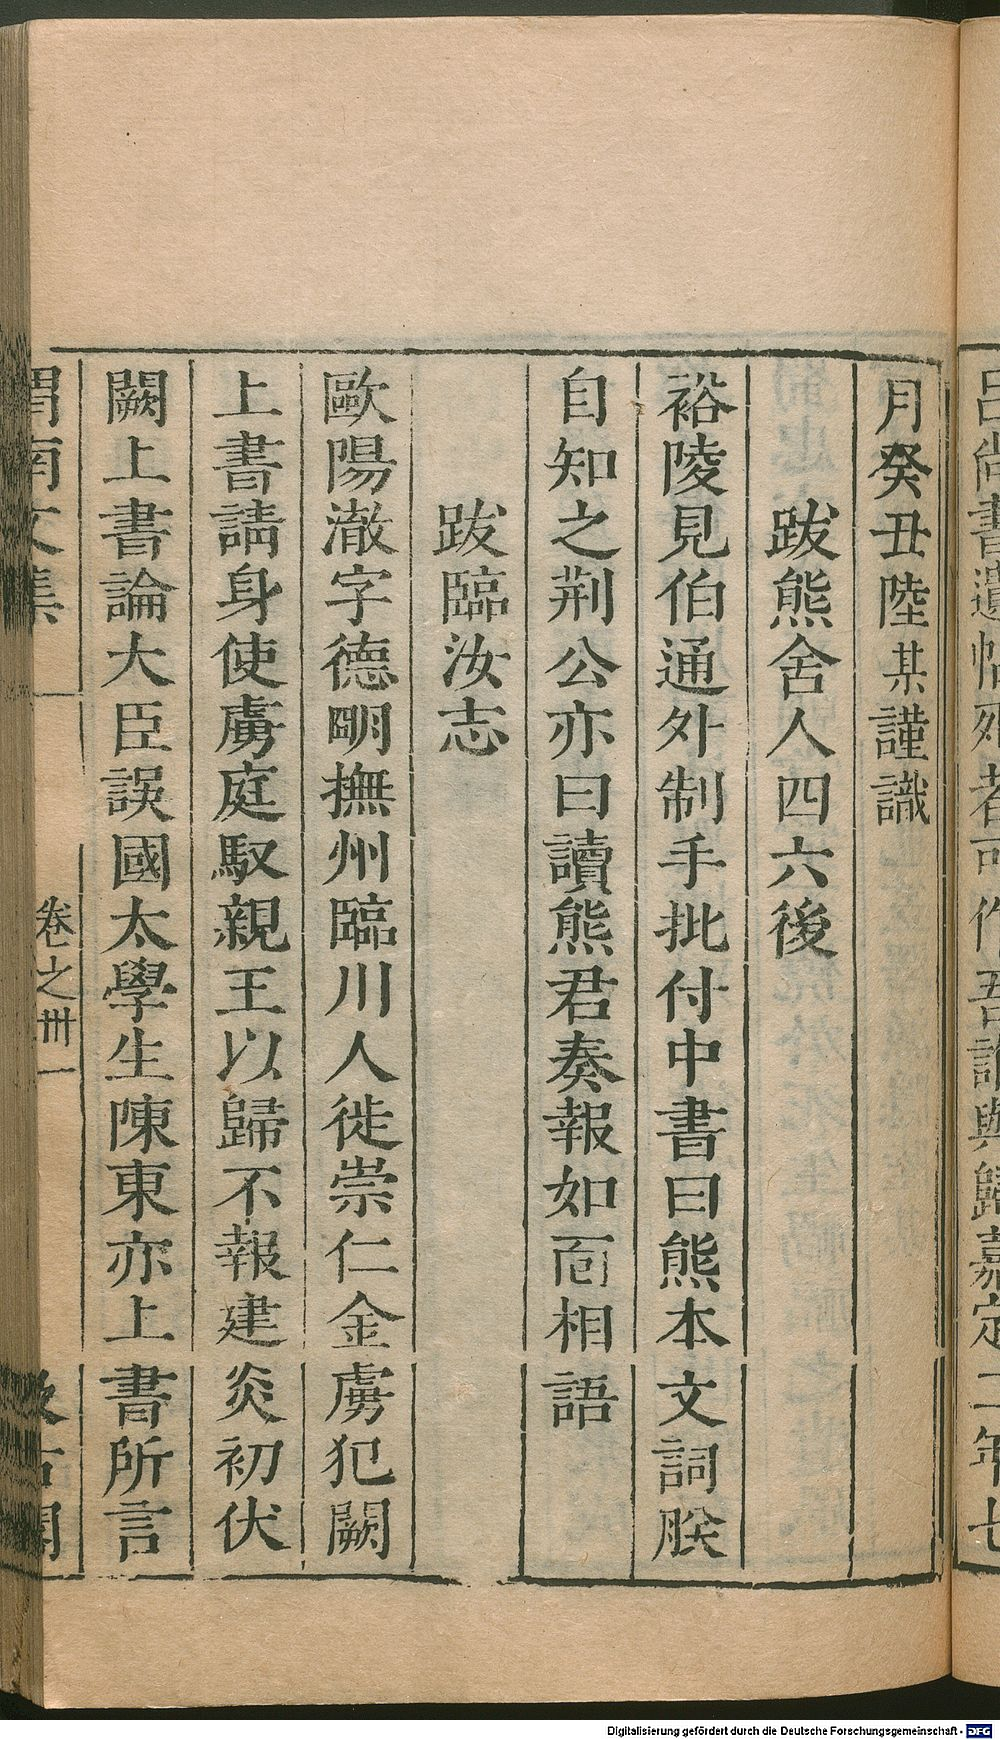 呂尚書遺帖死者可作吾誰與歸嘉定二年七
月癸丑陸某謹識
跋熊舍人四六後
裕陵見伯通外制手批付中書曰熊本文詞朕
自知之荆公亦曰讀熊君奏報如靣相語
跋臨汝志
歐陽澈字德明撫州臨川人徙崇仁金虜犯闕
上書請身使虜庭馭親王以歸不報建炎初伏
闕上書論大臣誤國太學生陳東亦上書所言
渭南文集 卷之卅一 汲古閣
Digitalisierung gefördert durch die Deutsche Forschungsgemeinschaft - DFG